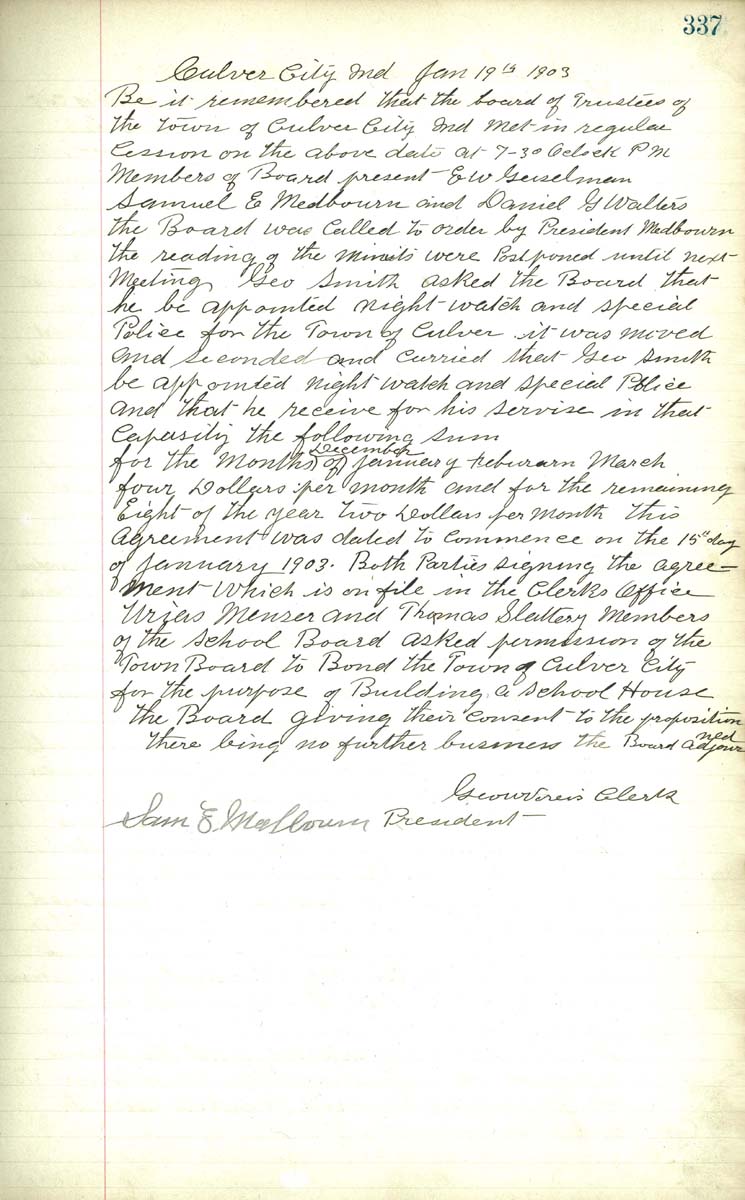 337
Culver City Ind Jan 19th 1903
Be it remembered that the board of Trustees of
the Town of Culver City Ind Met in regular
Cession on the above date at 7-30 Oclock P M
Members of Board present E W Geiselman
Samuel E Medbourn and Daniel G Walters
the Board was Called to order by President Medbourn
the reading of the minits were Postponed until next
Meeting Geo Smith asked the Board that
he be appointed night watch and special
Police for the Town of Culver it was moved
and seconded and Carried that Geo Smith
be appointed night watch and special Police
and that he receive for his servise in that
Capasity the following sum
December
for the Months of January Feburarn March
four Dollars per month and for the remaining
Eight of the year two Dollars per Month this
Agreement was dated to Commence on the 15th day
of January 1903. Both Parties signing the agree-
ment Which is on file in the Clerks Office
Urias Menser and Thomas Slattery Members
of the School Board asked permission of the
Town Board to Bond the Town of Culver City
for the purpose of Building a School House
the Board giving their Consent to the proposition
there being no further business the Board adjourned
Clerk
Sam E. Medbourn President